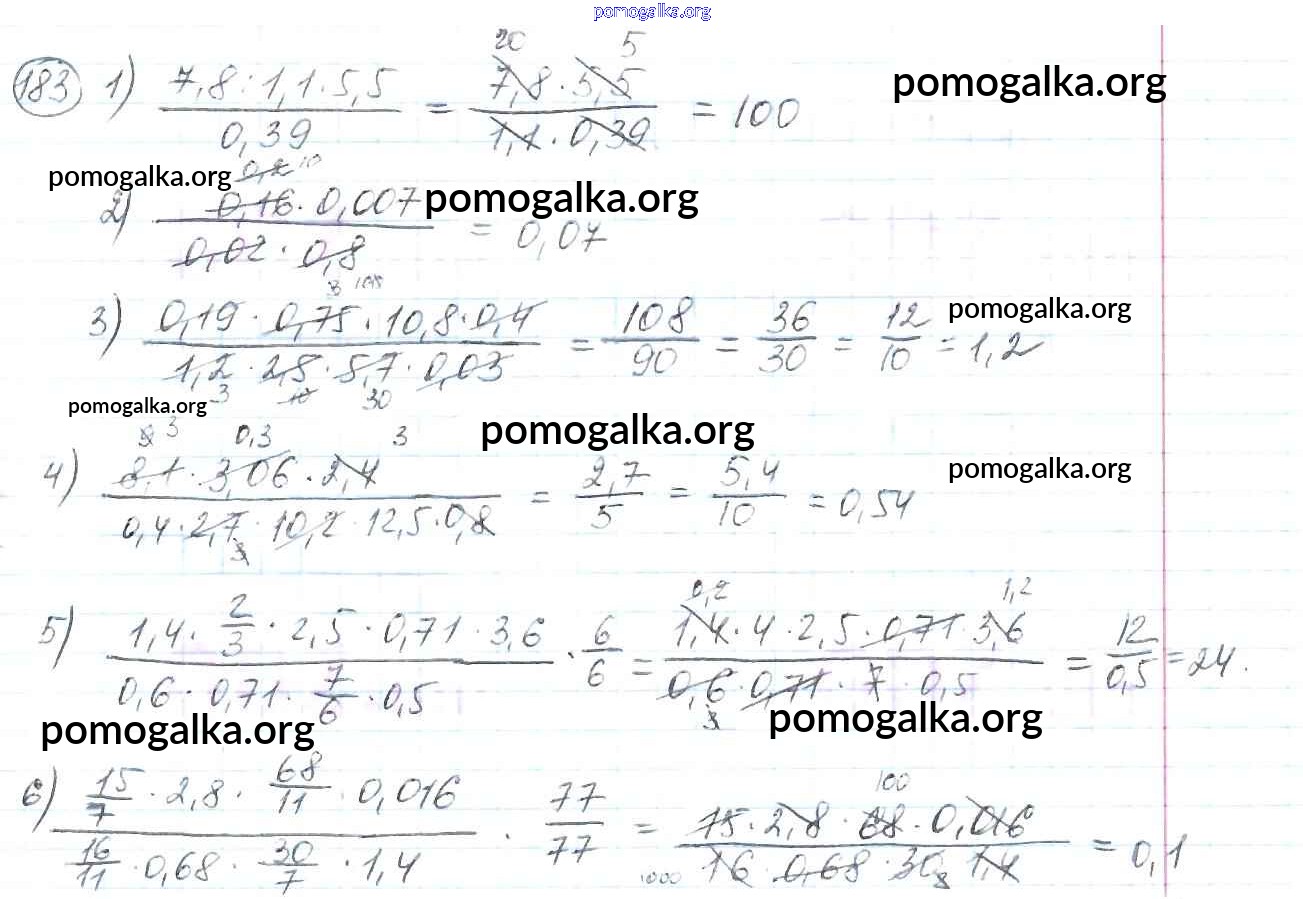 pomogalka.org
20 5
183 1) 7,8 : 1,1 · 5,5 / 0,39 = 7,8 · 5,5 / 1,1 · 0,39 = 100
pomogalka.org
pomogalka.org 0,2 10
2) 0,16 · 0,007 / 0,02 · 0,8 = 0,07
pomogalka.org
3 108
3) 0,19 · 0,75 · 10,8 · 0,4 / 1,2 · 2,5 · 5,7 · 0,03 = 108/90 = 36/30 = 12/10 = 1,2
pomogalka.org
3 10 30
pomogalka.org
3 0,3 3
pomogalka.org
4) 8,1 · 3,06 · 2,4 / 0,4 · 2,7 · 10,2 · 12,5 · 0,8 = 2,7/5 = 5,4/10 = 0,54
pomogalka.org
3
0,2 1,2
5) 1,4 · 2/3 · 2,5 · 0,71 · 3,6 / 0,6 · 0,71 · 7/6 · 0,5 · 6/6 = 1,4 · 4 · 2,5 · 0,71 · 3,6 / 0,6 · 0,71 · 7 · 0,5 = 12/0,5 = 24.
3
pomogalka.org
pomogalka.org
100
6) 15/7 · 2,8 · 68/11 · 0,016 / 16/11 · 0,68 · 30/7 · 1,4 · 77/77 = 15 · 2,8 · 68 · 0,016 / 16 · 0,68 · 30 · 1,4 = 0,1
1000